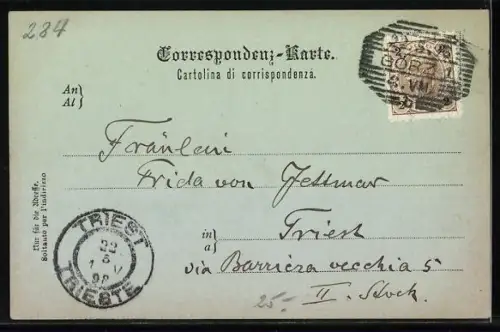 284
Correspondenz-Karte.
Cartolina di corrispondenza.
An
Al
GÖRZ
1
VII
Fräulein
Frida von Jettmar
in
a
Triest
via Barriera vecchia 5
II. Stock
25.-
Nur für die Adresse.
Soltanto per l'indirizzo
TRIEST
22
8
98
TRIESTE